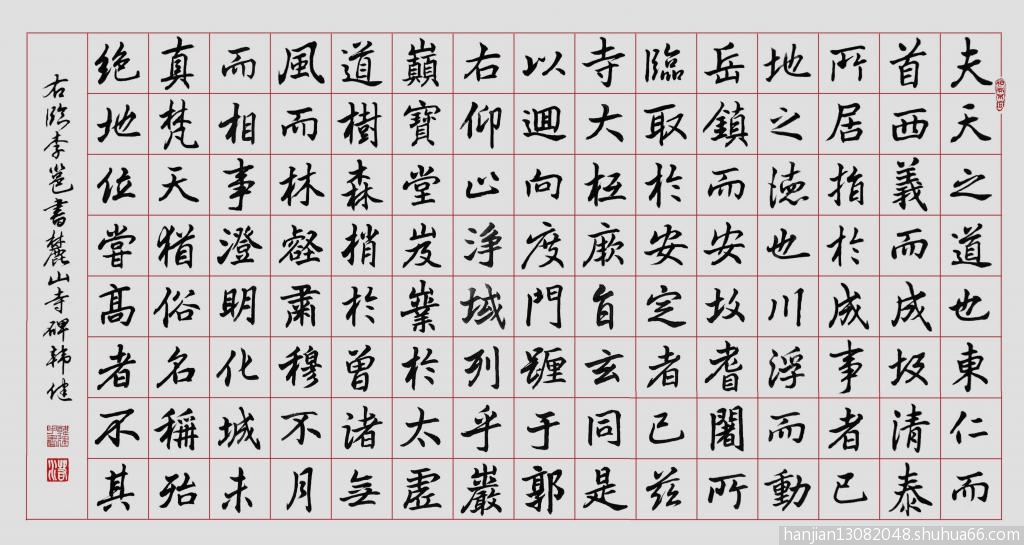 夫天之道也東仁而
首西義而成故清泰
所居指於成事者已
地之德也川浮而動
岳鎮而安故耆闍所
臨取於安定者已茲
寺大抵厥旨玄同是
以迴向度門躔于郭
右仰止淨域列乎巖
巔寶堂岌嶪於太虛
道樹森梢於曾諸無
風而林壑肅穆不月
而相事澄明化城未
真梵天猶俗名稱殆
絕地位嘗高者不其
右臨李邕書麓山寺碑韓健
hanjian13082048.shuhua66.com